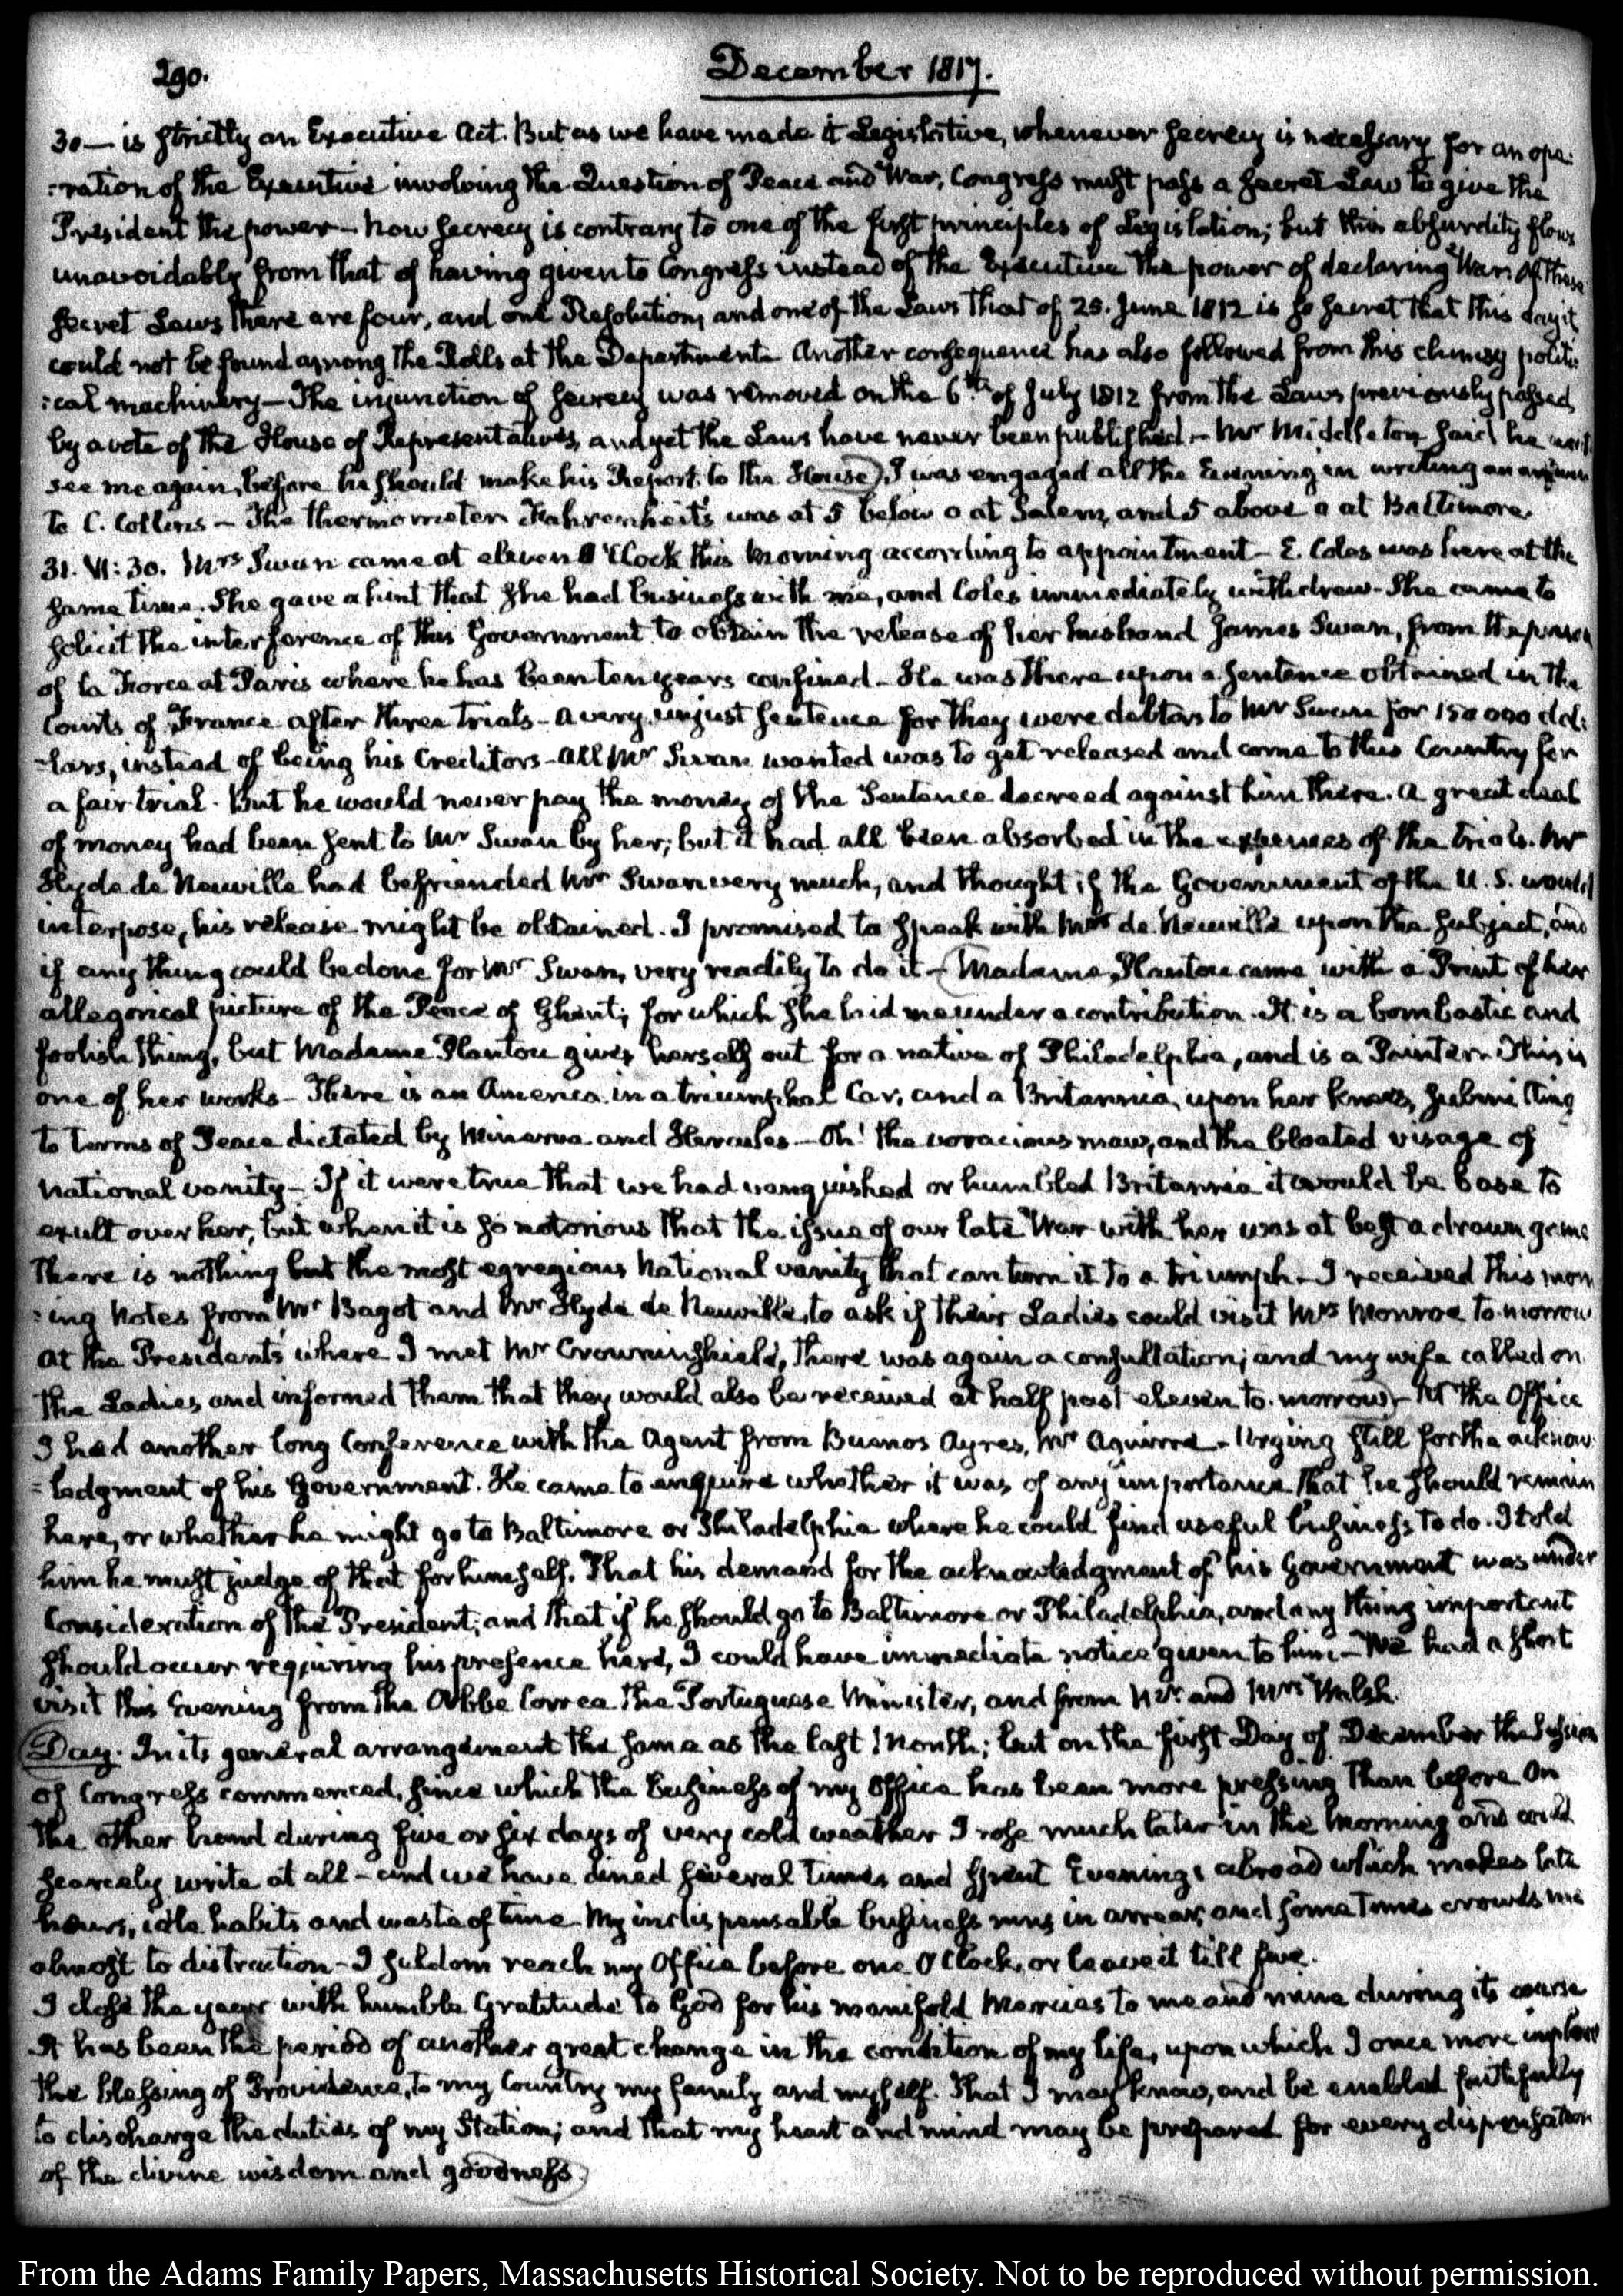 290.
December 1817.
30 — is strictly an Executive Act. But as we have made it Legislative, whenever secrecy is necessary for an ope:
:ration of the Executive involving the Question of Peace and War, Congress must pass a secret Law to give the
President the power — now secrecy is contrary to one of the first principles of Legislation; but this absurdity flows
unavoidably from that of having given to Congress instead of the Executive the power of declaring War. Of these
secret Laws there are four, and one Resolution, and one of the Laws that of 25. June 1812 is so secret that this day it
could not be found among the Rolls at the Department. Another consequence has also followed from this clumsy politi:
:cal machinery — The injunction of secrecy was removed on the 6th of July 1812 from the Laws previously passed
by a vote of the House of Representatives, and yet the Laws have never been published — Mr Middleton said he would
see me again, before he should make his Report to the House. I was engaged all the Evening in writing an answer
to C. Collins — The thermometer Fahrenheit's was at 5 below 0 at Salem, and 5 above 0 at Baltimore.
31. VI: 30. Mrs Swan came at eleven O'Clock this morning according to appointment — E. Coles was here at the
same time. She gave a hint that she had business with me, and Coles immediately withdrew — She came to
solicit the interference of this Government to obtain the release of her husband James Swan, from the prison
of la Force at Paris where he has been ten years confined — He was there upon a sentence obtained in the
Courts of France after three trials — a very unjust sentence for they were debtors to Mr Swan for 150 000 dol:
:lars, instead of being his Creditors — All Mr Swan wanted was to get released and come to this Country for
a fair trial. But he would never pay the money of the Sentence decreed against him there. A great deal
of money had been sent to Mr Swan by her; but it had all been absorbed in the expenses of the trials. Mr
Hyde de Neuville had befriended Mr Swan very much, and thought if the Government of the U. S. would
interpose, his release might be obtained. I promised to speak with Mr de Neuville upon the subject, and
if any thing could be done for Mr Swan, very readily to do it — Madame Plantou came with a Print of her
allegorical picture of the Peace of Ghent; for which she laid me under a contribution. It is a bombastic and
foolish thing, but Madame Plantou gives herself out for a native of Philadelphia, and is a Painter. This is
one of her works — There is an America in a triumphal Car, and a Britannia, upon her knees, submitting
to terms of Peace dictated by Minerva and Hercules — Oh! the voracious maw, and the bloated visage of
national vanity — If it were true that we had vanquished or humbled Britannia it would be base to
exult over her, but when it is so notorious that the issue of our late War with her was at best a drawn game
There is nothing but the most egregious National vanity that can turn it to a triumph — I received this mor
:ing Notes from Mr Bagot and Mr Hyde de Neuville, to ask if their Ladies could visit Mrs Monroe to-morrow
At the Presidents where I met Mr Crowninshield, there was again a consultation; and my wife called on
the Ladies and informed them that they would also be received at half past eleven to-morrow — At the Office
I had another long Conference with the Agent from Buenos Ayres, Mr Aguirre — Urging still for the acknow:
:ledgment of his Government. He came to enquire whether it was of any importance that he should remain
here, or whether he might go to Baltimore or Philadelphia where he could find useful business to do. I told
him he must judge of that for himself. That his demand for the acknowledgment of his Government was under
Consideration of the President; and that if he should go to Baltimore or Philadelphia, and any thing important
should occur requiring his presence here, I could have immediate notice given to him — We had a short
visit this Evening from the Abbe Correa the Portuguese Minister, and from Mr and Mrs Walsh.
Day. In its general arrangement the same as the last Month; but on the first Day of December the Session
of Congress commenced, since which the business of my Office has been more pressing than before On
the other hand during five or six days of very cold weather I rose much later in the Morning and could
scarcely write at all — and we have dined several times and spent Evenings abroad which makes late
hours, idle habits and waste of time. My indispensable business runs in arrear, and sometimes crowds me
almost to distraction — I seldom reach my Office before one O'Clock, or leave it till five.
I close the year with humble Gratitude to God for his manifold Mercies to me and mine during its course
It has been the period of another great change in the condition of my life, upon which I once more implore
the blessing of Providence, to my Country my family and myself. That I may know, and be enabled faithfully
to discharge the duties of my Station; and that my heart and mind may be prepared for every dispensation
of the divine wisdom and goodness.
From the Adams Family Papers, Massachusetts Historical Society. Not to be reproduced without permission.